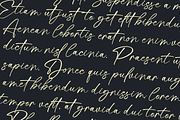 Suspendisse a
Etiam ut justo to get elit bibendum
Aenean lobortis cratron enim
dictum nisl lacinia. Praesent
sapien. Donec quis pulvinar aug
amet bibendum dignissim lorem
Tempor velit at gravida dui tortor